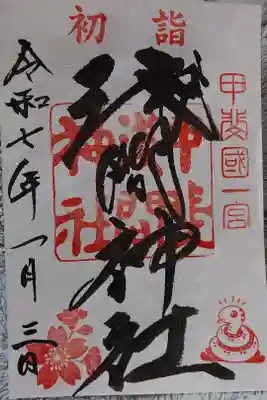 初詣
甲斐國一宮
浅間神社
令和七年一月三日